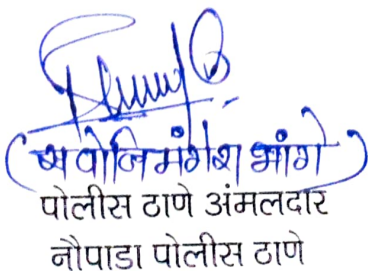 (सपोनि मंगेश भांगे)
पोलीस ठाणे अंमलदार
नौपाडा पोलीस ठाणे